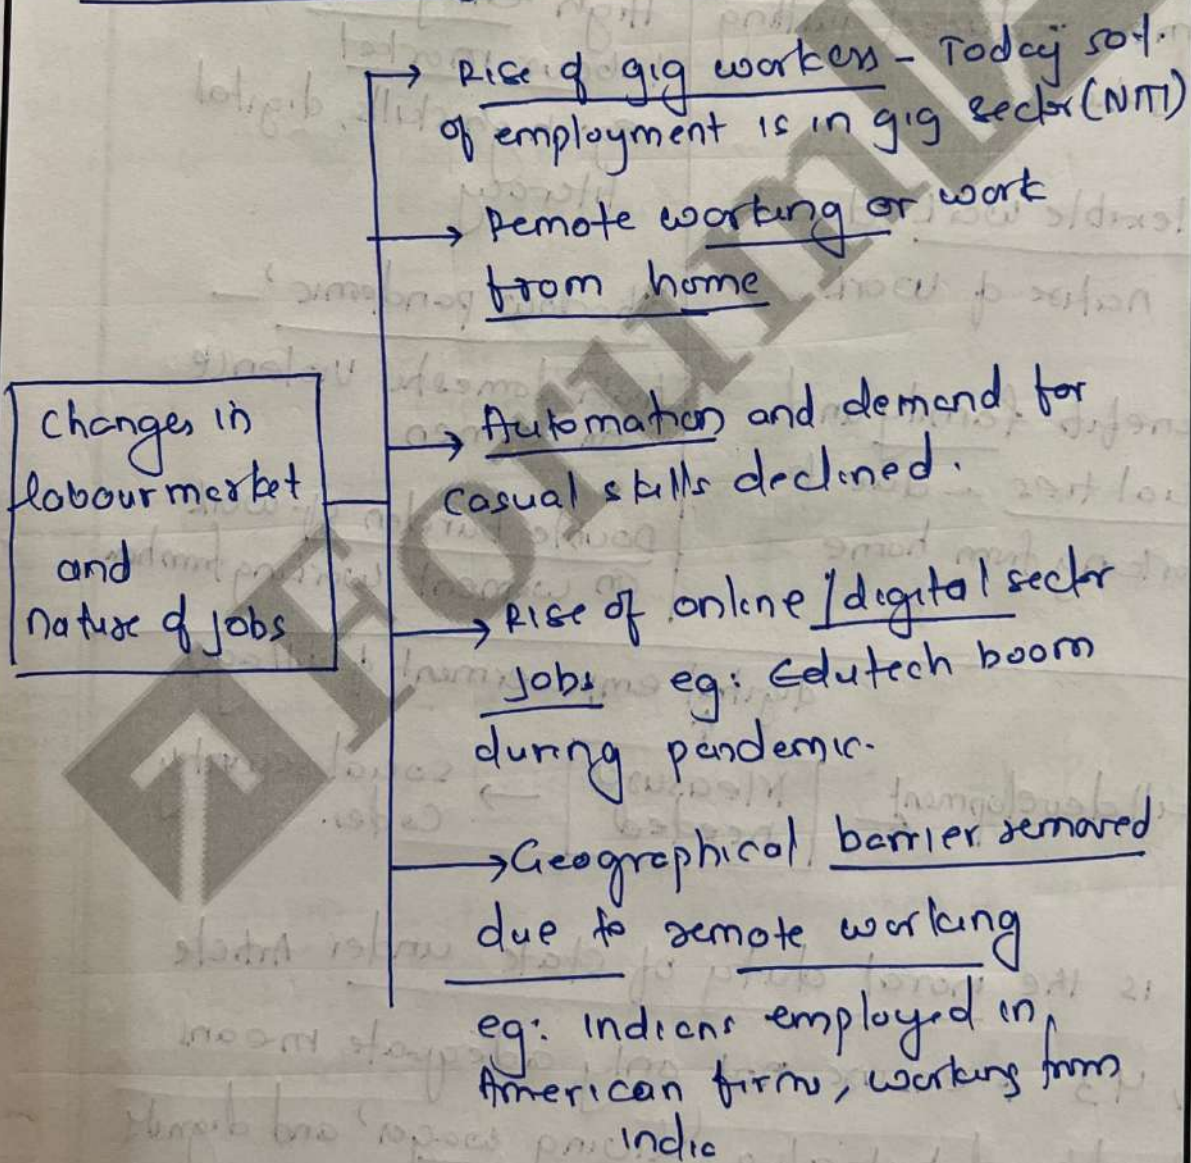 Changes in
labour market
and
nature of jobs
→ Rise of gig workers - Today 50%.
of employment is in gig sector (NITI)
→ Remote working or work
from home
→ Automation and demand for
casual skills declined.
→ Rise of online/digital sector
jobs eg: Edutech boom
during pandemic.
→ Geographical barrier removed
due to remote working
eg: Indians employed in
American firms, working from
India
ForumIAS